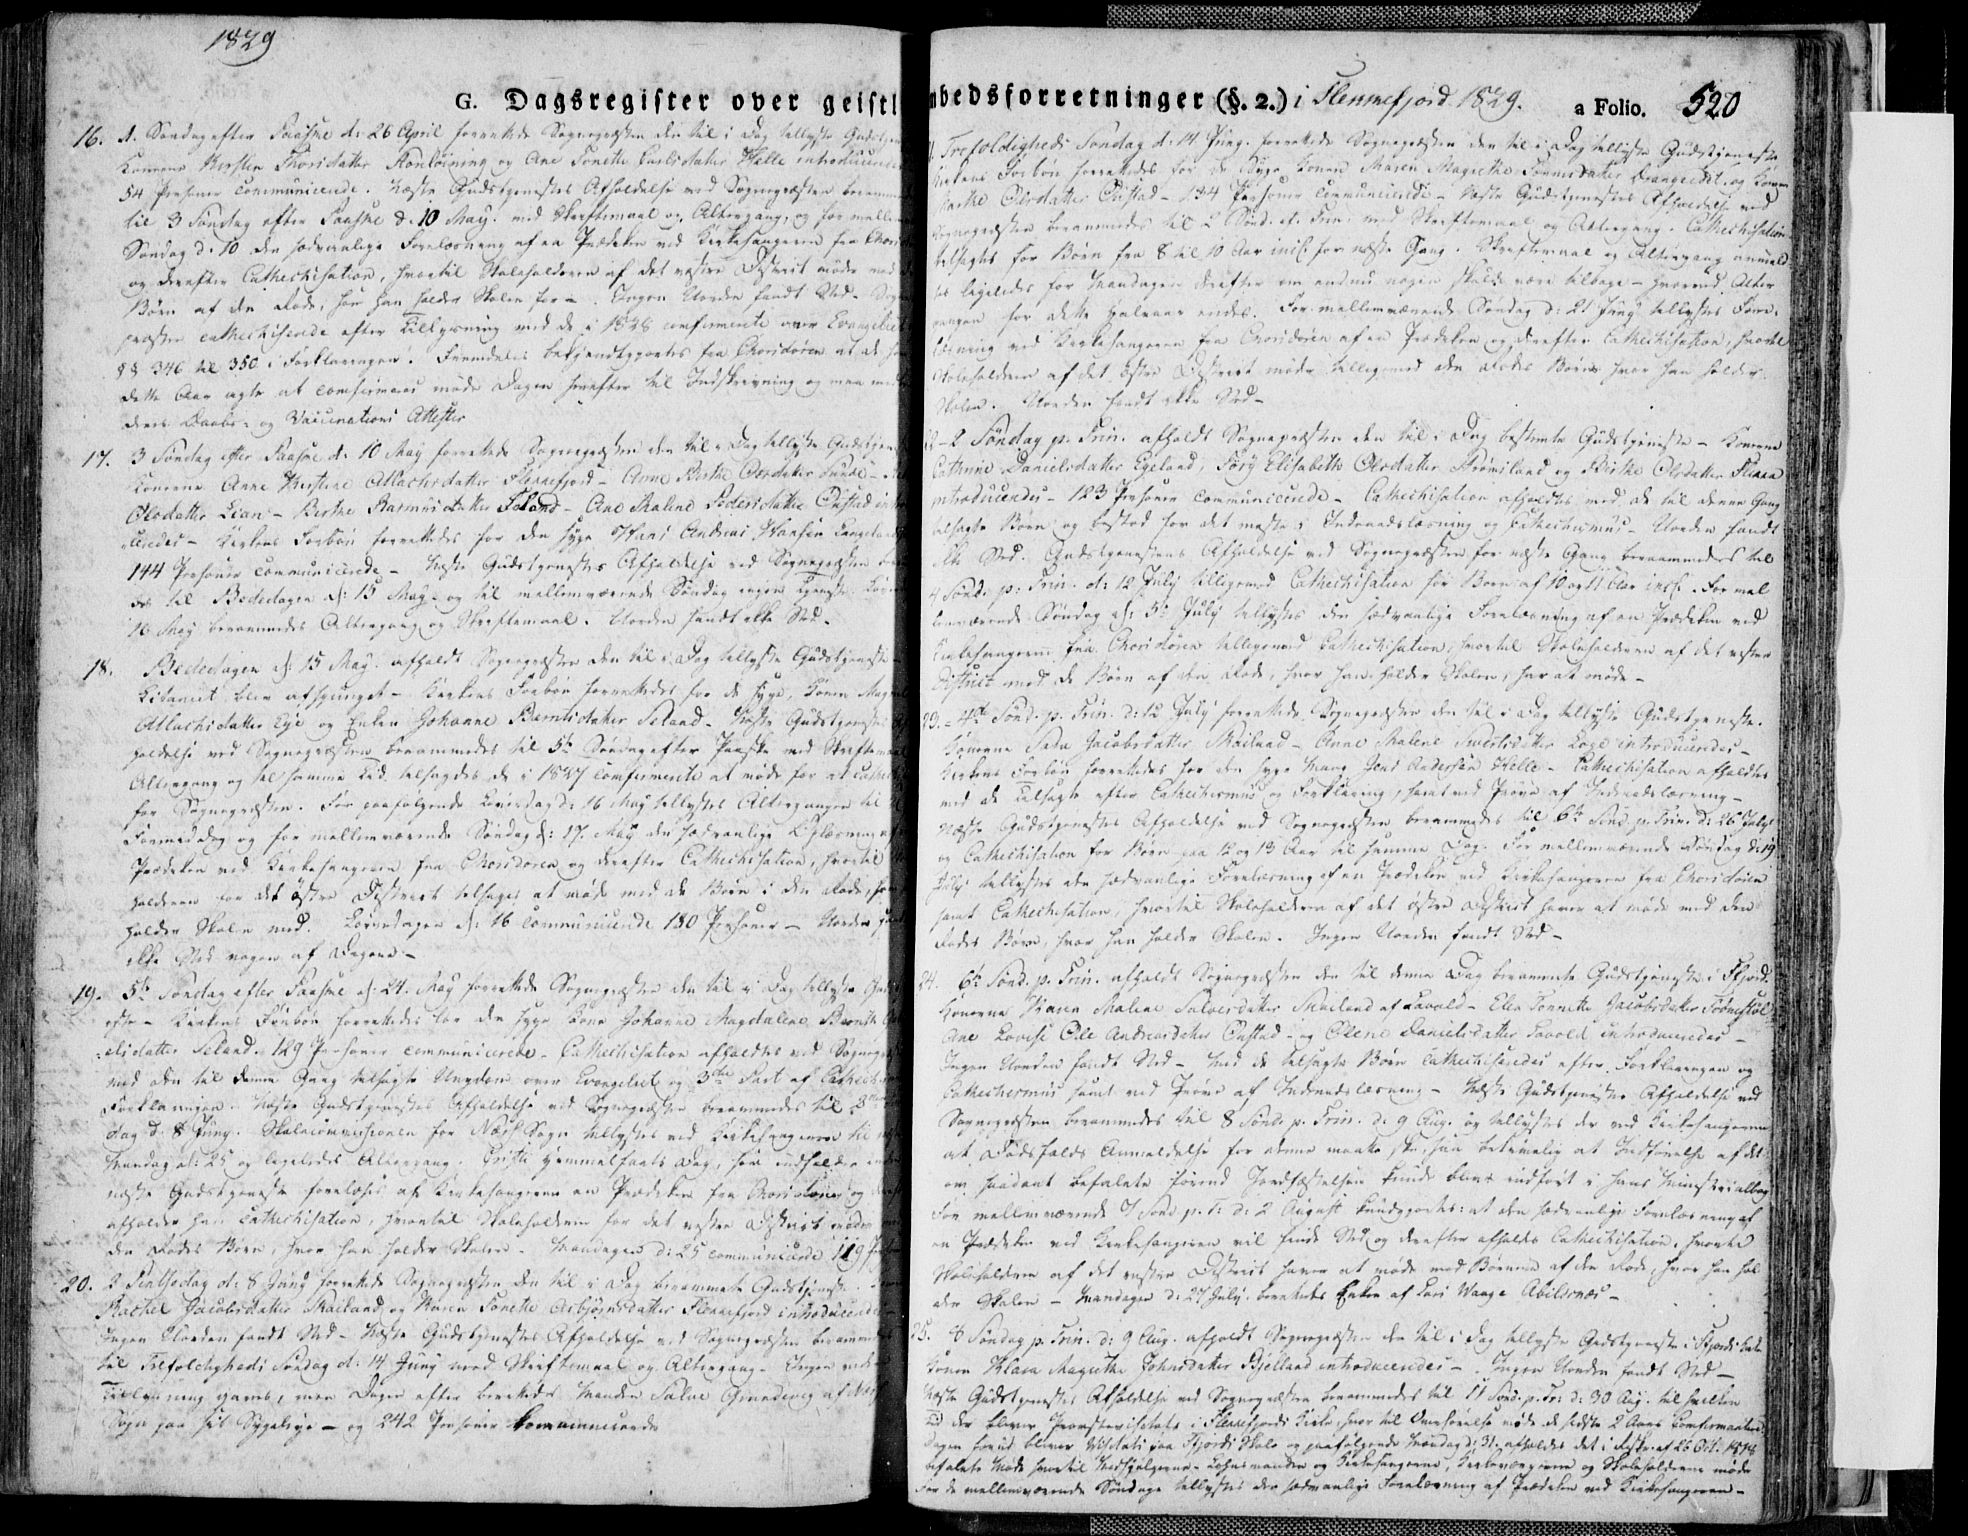 1829
G. Dagsregister over geistl
16. 1. Søndag efter Paaske d: 26 April forrettede Sognepræsten den til i Dag tillyste Gudstjen
Konerne Kirsten Thorsdatter og Ane Tonette Carlsdatter Helle introducered
54 Personer communicerede. Næste Gudstjenestes Afholdelse ved Sognepræsten berammed
til 3 Søndag efter Paaske d. 10 May. med Skriftemaal og Altergang, og for mellem
Søndag d: 10 den sædvanlige Forelæsning af en Prædiken ved Kirkesangeren fra Chors
og derefter Cathechisation, hvortil Skoleholderen af det vestre District møder med de
Børn af den Rode, hvor han holder Skolen for -. Ingen Uorden fandt Sted. Sogne
præsten catechiserede efter Tillysning med de i 1828 confirmerede over Evangeliet
§§ 346 til 350 i Forklaringen. Fremdeles bekjendtgjortes fra Chorsdøren at de som
dette Aar agte at confirmeres møde Dagen herefter til Indskrivning og maa med
deres Daabs- og Vaccinations Attester
17. 3 Søndag efter Paaske d: 10 May forrettede Sognepræsten den til i Dag tillyste Gudstjen
Konerne Anne Kirstine Atlachsdatter Flekkefjord - Anne Berthe Olsdatter
Olsdatter Lian - Berthe Seland - Ane Malene Pedersdatter Oustad intro
ceredes - Kirkens Forbøn forrettedes for den syge Hans Andreas Hansen
144 Personer communicerede - Næste Gudstjenestes Afholdelse ved Sognepræsten
des til Bededagen d: 15 May og til mellemværende Søndag ingen Tjeneste. Løver
16 May berammedes Altergang og Skriftemaal. Uorden fandt ikke Sted.
18. Bededagen d: 15 May. afholdt Sognepræsten den til i Dag tillyste Gudstjeneste -
Litaniet blev afsjunget - Kirkens Forbøn forrettedes for de syge, Konen Mag
Atlachsdatter Eye og Enken Johanne Berntsdatter Seland. Næste Gudstjenestes
holdelse ved Sognepræsten berammedes til 5te Søndag efter Paaske med Skriftemaal
Altergang og til samme Tid tilsagdes de i 1827 confirmerede at møde for at cathe
for Sognepræsten. For paafølgende Løverdag d: 16 May tillystes Altergangen til
Formiddag og for mellemværende Søndag d: 17. May den sædvanlige Oplæsning af
Prædiken ved Kirkesangeren fra Chorsdøren og derefter Cathechisation, hvortil
holderen for det østre District tilsages at møde med de Børn i den Rode, hvor
holder Skolen med. Løverdagen d: 16 communicerede 180 Personer - Uorden fandt
ikke Sted nogen af Dagene -
19. 5te Søndag efter Paaske d: 24. May forrettede Sognepræsten den til i Dag tillyste Gud
este - Kirkens Forbøn forrettedes for den syge Kone Johanne Magdalene
elisdatter Seland. 129 Personer communicerede - Cathechisation afholdtes ved Sogne
med den til denne Gang tilsagte Ungdom over Evangeliet og 3die Part af Cathech
Forklaringen. Næste Gudstjenestes Afholdelse ved Sognepræsten berammedes til
dag d. 8 Juny. Skolecommissionen for Næs Sogn tillystes ved Kirkesangeren til
Mandag d: 25 og ligeledes Altergang. Christi Himmelfarts Dag, som indfalder inden
næste Gudstjeneste forelæses af Kirkesangeren en Prædiken fra Chorsdøren og
afholder han Cathechisation, hvortil Skoleholderen for det vestre District møder med
den Rodes Børn, hvor han holder Skolen. Mandagen d: 25 communicerede 119
20. 2 Pintsedag d: 8 Juny forrettede Sognepræsten den til i Dag berammede Gudstjeneste.
Rachel Jacobsdatter Skailand og Maren Tonette Asbjørnsdatter Flekkefjord introducered
Ingen Uorden fandt Sted - Næste Gudstjenestes Afholdelse ved Sognepræsten berammed
til Trefoldigheds Søndag d: 14 Juny med Skriftemaal og Altergang. Ingen
Tillysning gaves, men Dagen efter Manden Salve af
Sogn paa sit Sygeleje - og 242 Personer kommunicerede
mbedsforretninger (§. 2.) i Flekkefjord 1829. a Folio. 520
Trefoldigheds Søndag d: 14 Juny. forrettede Sognepræsten den til i Dag tillyste Gudstjeneste
Kirkens Forbøn forrettedes for de syge Konen Maren Magrethe Tønnisdatter og Konen
Olsdatter Oustad - 134 Personer communicerede - Næste Gudstjenestes Afholdelse ved
Sognepræsten berammedes til 2 Sønd. ef. Trin: med Skriftemaal og Altergang. Cathechisation
tilsagdes for Børn fra 8 til 10 Aar incl. for næste Gang. Skriftemaal og Altergang anmeld
tes ligeledes for Mandagen derefter om endnu nogen skulde være tilbage - hvorved Alter
gangen for dette Halvaar endes. For mellemværende Søndag d: 21 Juny tillystes Fore-
læsning ved Kirkesangeren fra Chorsdøren af en Prædiken og derefter Cathechisation, hvortil
Skoleholderen af det østre District møder tilligemed den Rodes Børn hvor han holder
Skolen. Uorden fandt ikke Sted -
22 - 2 Søndag p. Trin. afholdt Sognepræsten den til i Dag bestemte Gudstjeneste - Konerne
Cathrine Danielsdatter Egeland, Siry Elisabeth Olsdatter og Birthe Olsdatter
introduceredes - 123 Personer communicerede - Cathechisation afholdtes med de til denne Gang
tilsagte Børn og bestod for det meste i Indenadslæsning og Cathechismus - Uorden fandt
ikke Sted. Gudstjenestens Afholdelse ved Sognepræsten for næste Gang berammedes til
4 Sønd. p. Trin. d: 12 July tilligemed Cathechisation for Børn af 10 og 11 Aar incl. For mel
lemværende Søndag d: 5te July tillystes den sædvanlige Forelæsning af en Prædiken ved
Kirkesangeren fra Chorsdøren tilligemed Cathechisation, hvortil Skoleholderen af det vestre
District med de Børn af den Rode, hvor han holder Skolen, har at møde -
23. - 4de Sønd. p. Trin. d: 12 July forrettede Sognepræsten den til i Dag tillyste Gudstjeneste.
Konerne Sara Jacobsdatter Skailand - Anne Malene Sivertsdatter Loge introduceredes -
Kirkens Forbøn forrettedes for den syge Mand Jens Andersen Helle - Cathechisation afholdtes
med de Tilsagte efter Cathechismus og Forklaring, samt ved Prøve af Indenadslæsning -
Næste Gudstjenestes Afholdelse ved Sognepræsten berammedes til 6te Sønd. p. Trin. d: 26 July
og Cathechisation for Børn paa 12 og 13 Aar til samme Dag. For mellemværende Søndag d: 19
July tillystes den sædvanlige Forelæsning af en Prædiken ved Kirkesangeren fra Chorsdøren
samt Cathechisation, hvortil Skoleholderen af det østre District haver at møde med den
Rodes Børn, hvor han holder Skolen. Ingen Uorden fandt Sted -
24. 6te Sønd. p. Trin. afholdt Sognepræsten den til denne Dag berammede Gudstjeneste i Fjord.
Konerne Karen Malene Salvesdatter Skailand af Lavold - Elen Tonnette Jacobsdatter
Ane Lovise Andreasdatter Oustad - og Elene Danielsdatter Lavold introduceredes -
Ingen Uorden fandt Sted - Med de tilsagte Børn Cathechiseredes efter Forklaringen og
Cathechismus samt ved Prøve af Indenadslæsning - Næste Gudstjenestes Afholdelse ved
Sognepræsten berammedes til 8 Sønd. p. Trin. d: 9 Aug. og tillystes der ved Kirkesangeren
at Dødsfalds Anmeldelse for denne maatte ske saa betimelig at Indførelse af det
om saadant befalede førend Jordfæstelsen kunde blive indført i hans Ministerialbog
For mellemværende 7 Sønd. p. T: d: 2 August kundgjordes: at den sædvanlige Forelæsning af
en Prædiken ved Kirkesangeren vil finde Sted og derefter afholdes Cathechisation, hvortil
Skoleholderen af det vestre District haver at møde med Børnene af den Rode, hvor han hol
der Skolen - Mandagen d: 27 July. Enken af Lars Waage Abilsnæs -
25. 8 Søndag p. Trin. d: 9 Aug. afholdt Sognepræsten den til i Dag tillyste Gudstjeneste i Fjords Kirke
Konen Klara Magrethe Johnsdatter Bjelland introduceredes - Ingen Uorden fandt Sted -
Næste Gudstjenestes Afholdelse ved Sognepræsten berammedes til 11 Sønd. p. Tr: d: 30 Aug. til hvilken
Tid der bliver Provstevisitats i Flekkefjords Kirke, hvor til Overhørelse møde de sidste 2 Aars Confirmanter.
Dagen forud bliver Visitats paa Fjords Skole og paafølgende Mandag d: 31. afholdes det i Reskr. af 26 Oct. 1818
befalede Møde hvortil Medhjelperne - Lehnsmanden og Kirkesangerne, Kirkeværgerne og Skoleholderne møde
For de mellemværende Søndage tillystes den sædvanlige Forelæsning af Prædiken ved Kirkesangeren -